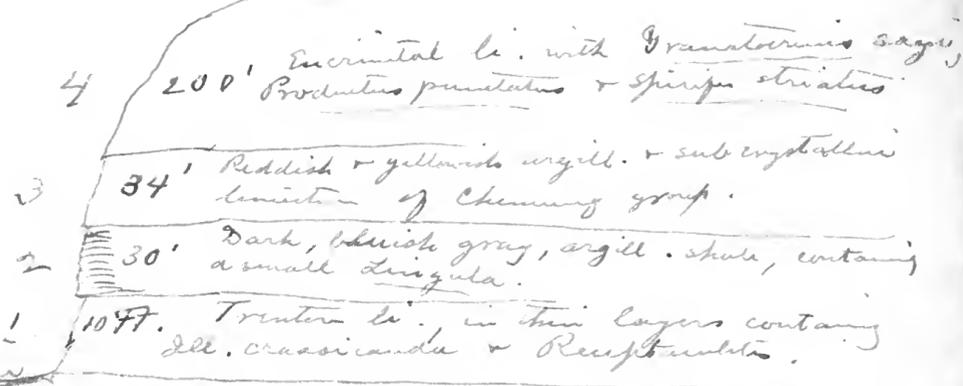 Encrinital li. with Granatocrinus sayi,
4 200' Productus punctatus & Spirifer striatus
3 34' Reddish & yellowish argill. & subcrystallini
limestone of Chemung group.
2 30' Dark, bluish gray, argill. shale, containing
a small Lingula.
1 10 ft. Trenton li., in thin layers containing
Ill. crassicauda & Receptaculites.